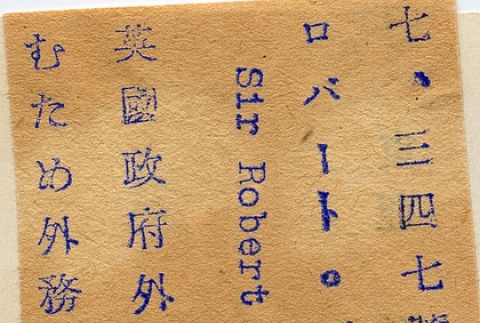 七、三四七
ロバート。
Sir Robert
英國政府外
むため外務